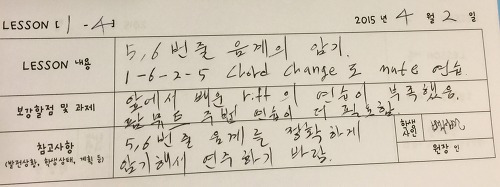 LESSON [ 1 - 4 ] 2015 년 4 월 2 일
LESSON 내용
5,6 번줄 음계의 암기.
1-6-2-5 Chord Change 로 mute 연습
보강할점 및 과제
앞에서 배운 riff 의 연습이 부족했음.
팜뮤트 주법 연습이 더 필요함.
참고사항
(발전상황, 학생상태, 계획 등)
5,6 번줄 음계를 정확하게
암기해서 연주하기 바람.
학생
사인
원장 인